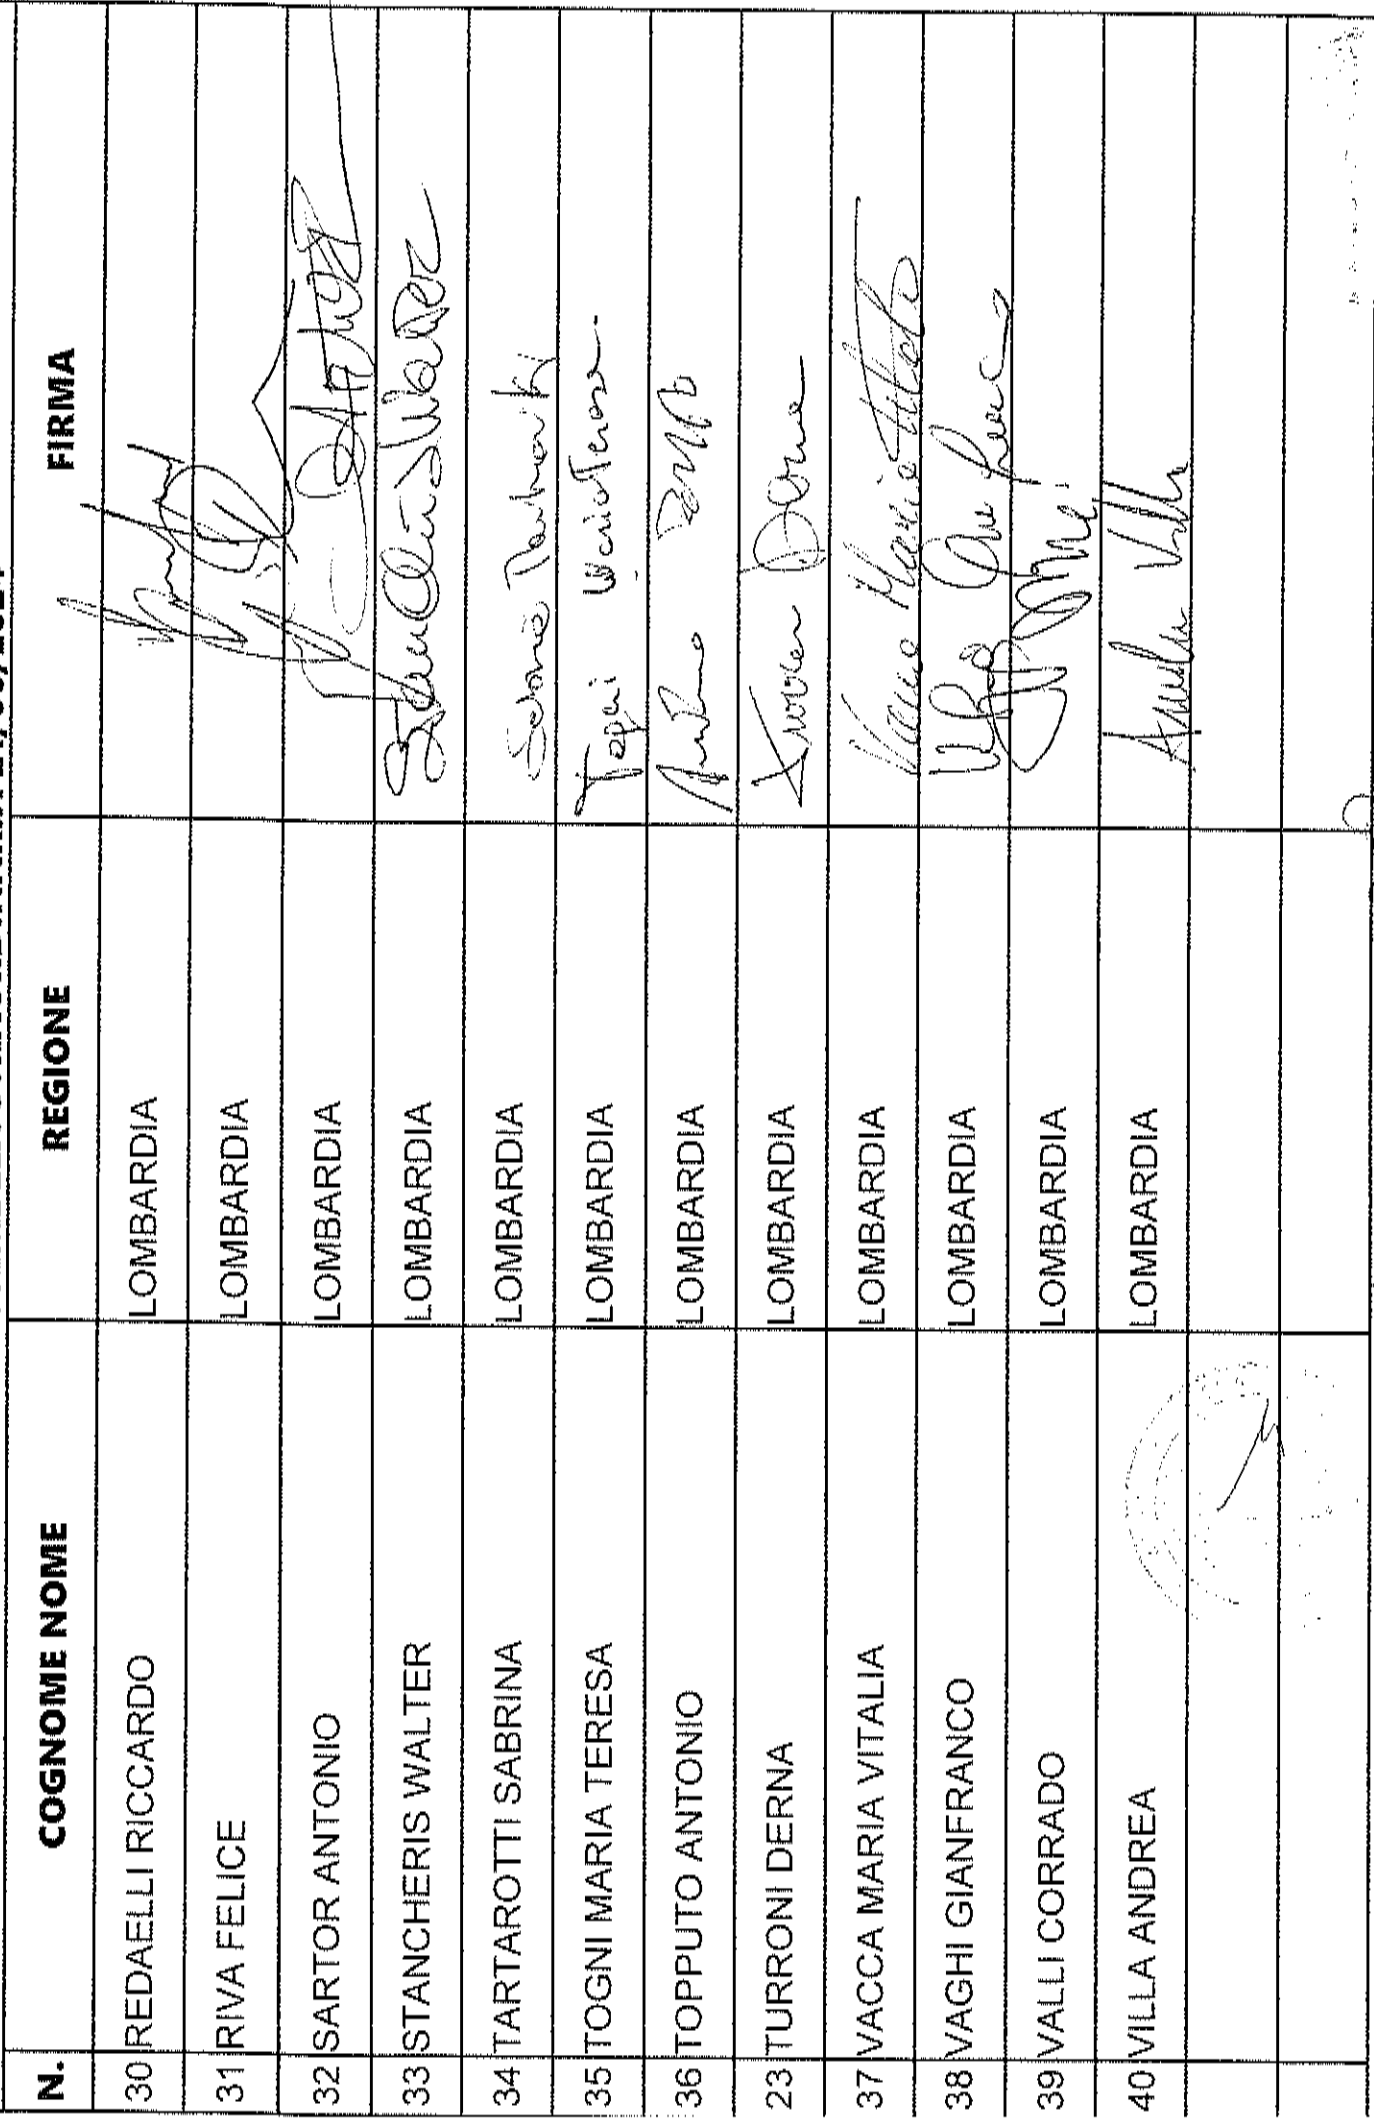 N. COGNOME NOME REGIONE FIRMA
30 REDAELLI RICCARDO LOMBARDIA
31 RIVA FELICE LOMBARDIA
32 SARTOR ANTONIO LOMBARDIA
33 STANCHERIS WALTER LOMBARDIA
34 TARTAROTTI SABRINA LOMBARDIA
35 TOGNI MARIA TERESA LOMBARDIA Togni Maria Teresa
36 TOPPUTO ANTONIO LOMBARDIA
23 TURRONI DERNA LOMBARDIA Derna
37 VACCA MARIA VITALIA LOMBARDIA Vacca Maria
38 VAGHI GIANFRANCO LOMBARDIA
39 VALLI CORRADO LOMBARDIA
40 VILLA ANDREA LOMBARDIA Andrea Villa